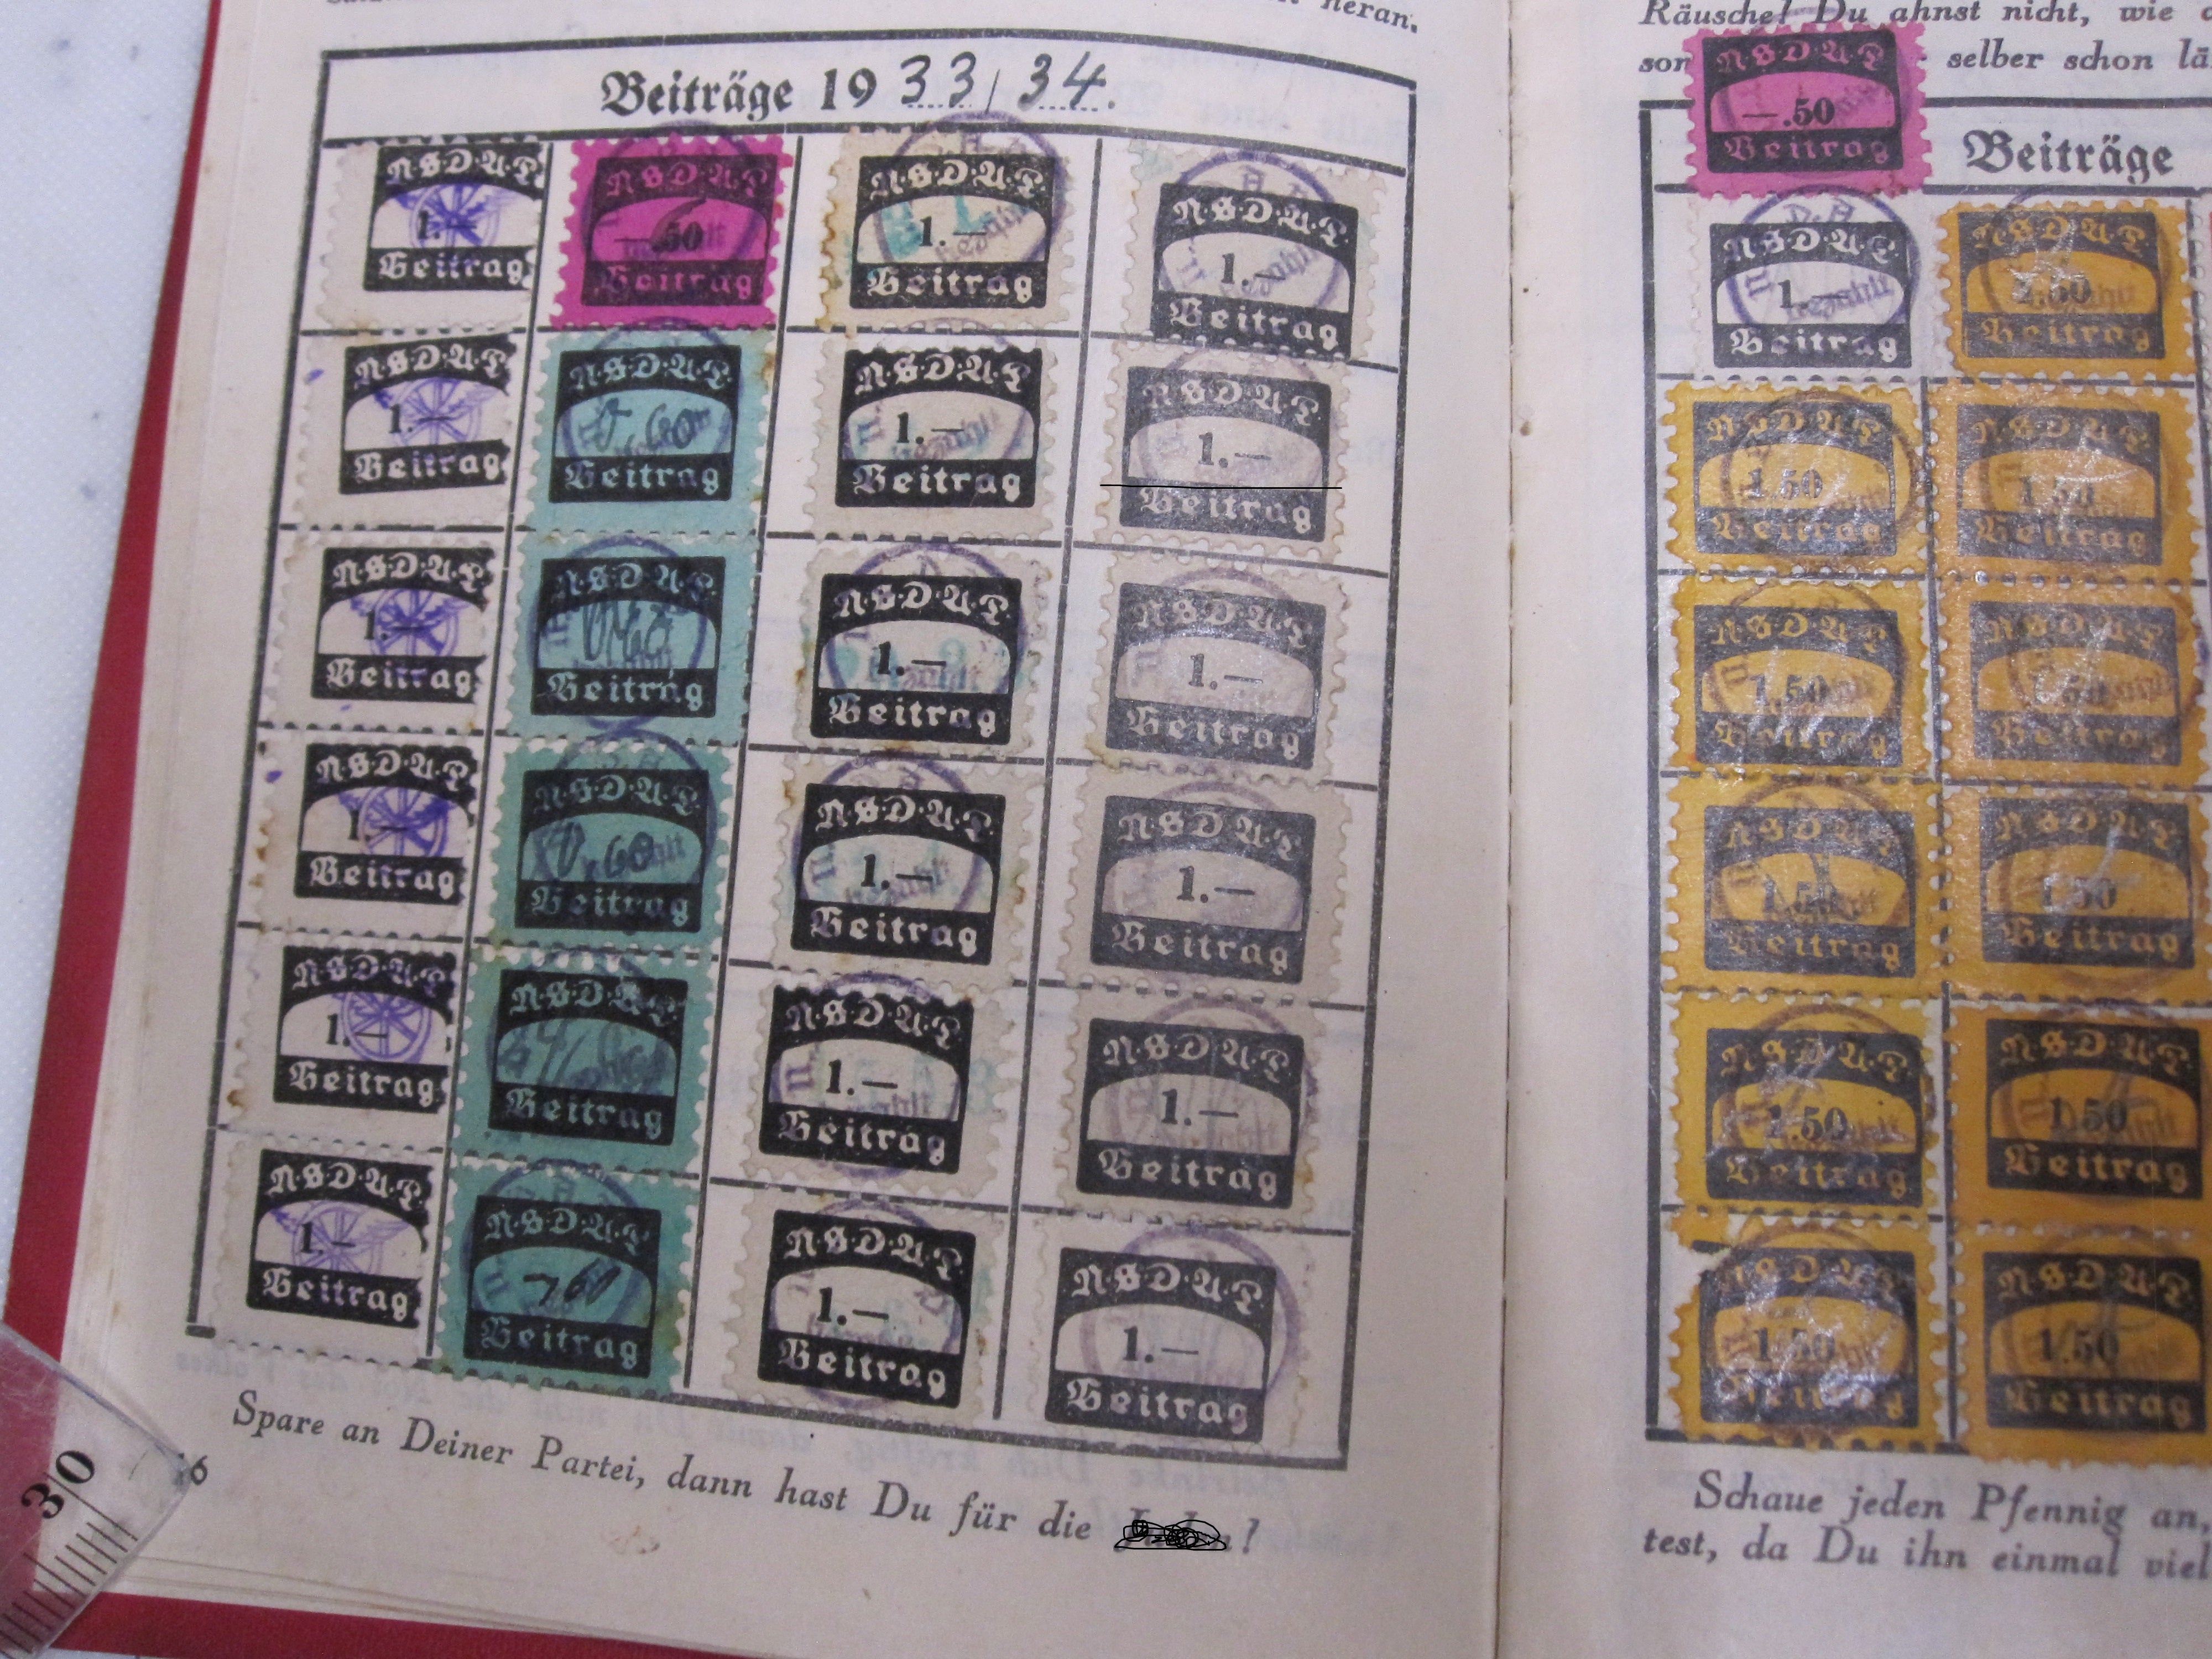 heran.
Beiträge 1933/34.
N·S·D·A·P. 1.— Beitrag
N·S·D·A·P. —.50 Beitrag
N·S·D·A·P. 1.— Beitrag
N·S·D·A·P. 1.— Beitrag
N·S·D·A·P. 1.— Beitrag
N·S·D·A·P. Beitrag
N·S·D·A·P. 1.— Beitrag
N·S·D·A·P. 1.— Beitrag
N·S·D·A·P. 1.— Beitrag
N·S·D·A·P. Beitrag
N·S·D·A·P. 1.— Beitrag
N·S·D·A·P. 1.— Beitrag
N·S·D·A·P. 1.— Beitrag
N·S·D·A·P. Beitrag
N·S·D·A·P. 1.— Beitrag
N·S·D·A·P. 1.— Beitrag
N·S·D·A·P. 1.— Beitrag
N·S·D·A·P. Beitrag
N·S·D·A·P. 1.— Beitrag
N·S·D·A·P. 1.— Beitrag
N·S·D·A·P. 1.— Beitrag
N·S·D·A·P. Beitrag
N·S·D·A·P. 1.— Beitrag
N·S·D·A·P. 1.— Beitrag
Spare an Deiner Partei, dann hast Du für die !
30
Räusche! Du ahnst nicht, wie
selber schon
N·S·D·A·P. —.50 Beitrag
Beiträge
N·S·D·A·P. 1.— Beitrag
N·S·D·A·P. 1.50 Beitrag
N·S·D·A·P. 1.50 Beitrag
N·S·D·A·P. 1.50 Beitrag
N·S·D·A·P. 1.50 Beitrag
N·S·D·A·P. 1.50 Beitrag
N·S·D·A·P. 1.50 Beitrag
N·S·D·A·P. 1.50 Beitrag
N·S·D·A·P. 1.50 Beitrag
N·S·D·A·P. 1.50 Beitrag
N·S·D·A·P. 1.50 Beitrag
N·S·D·A·P. 1.50 Beitrag
Schaue jeden Pfennig an,
test, da Du ihn einmal viel